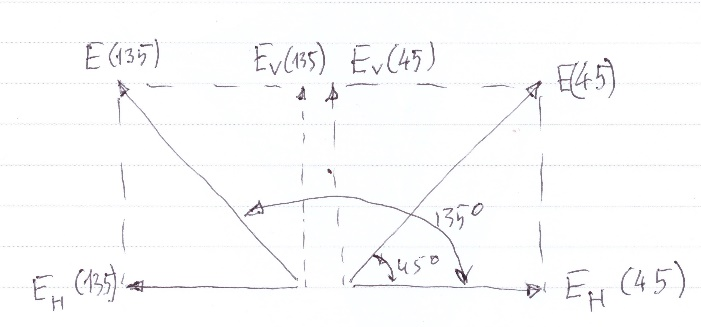 E(135) Ev(135) Ev(45) E(45)
135°
45°
EH(135) EH(45)